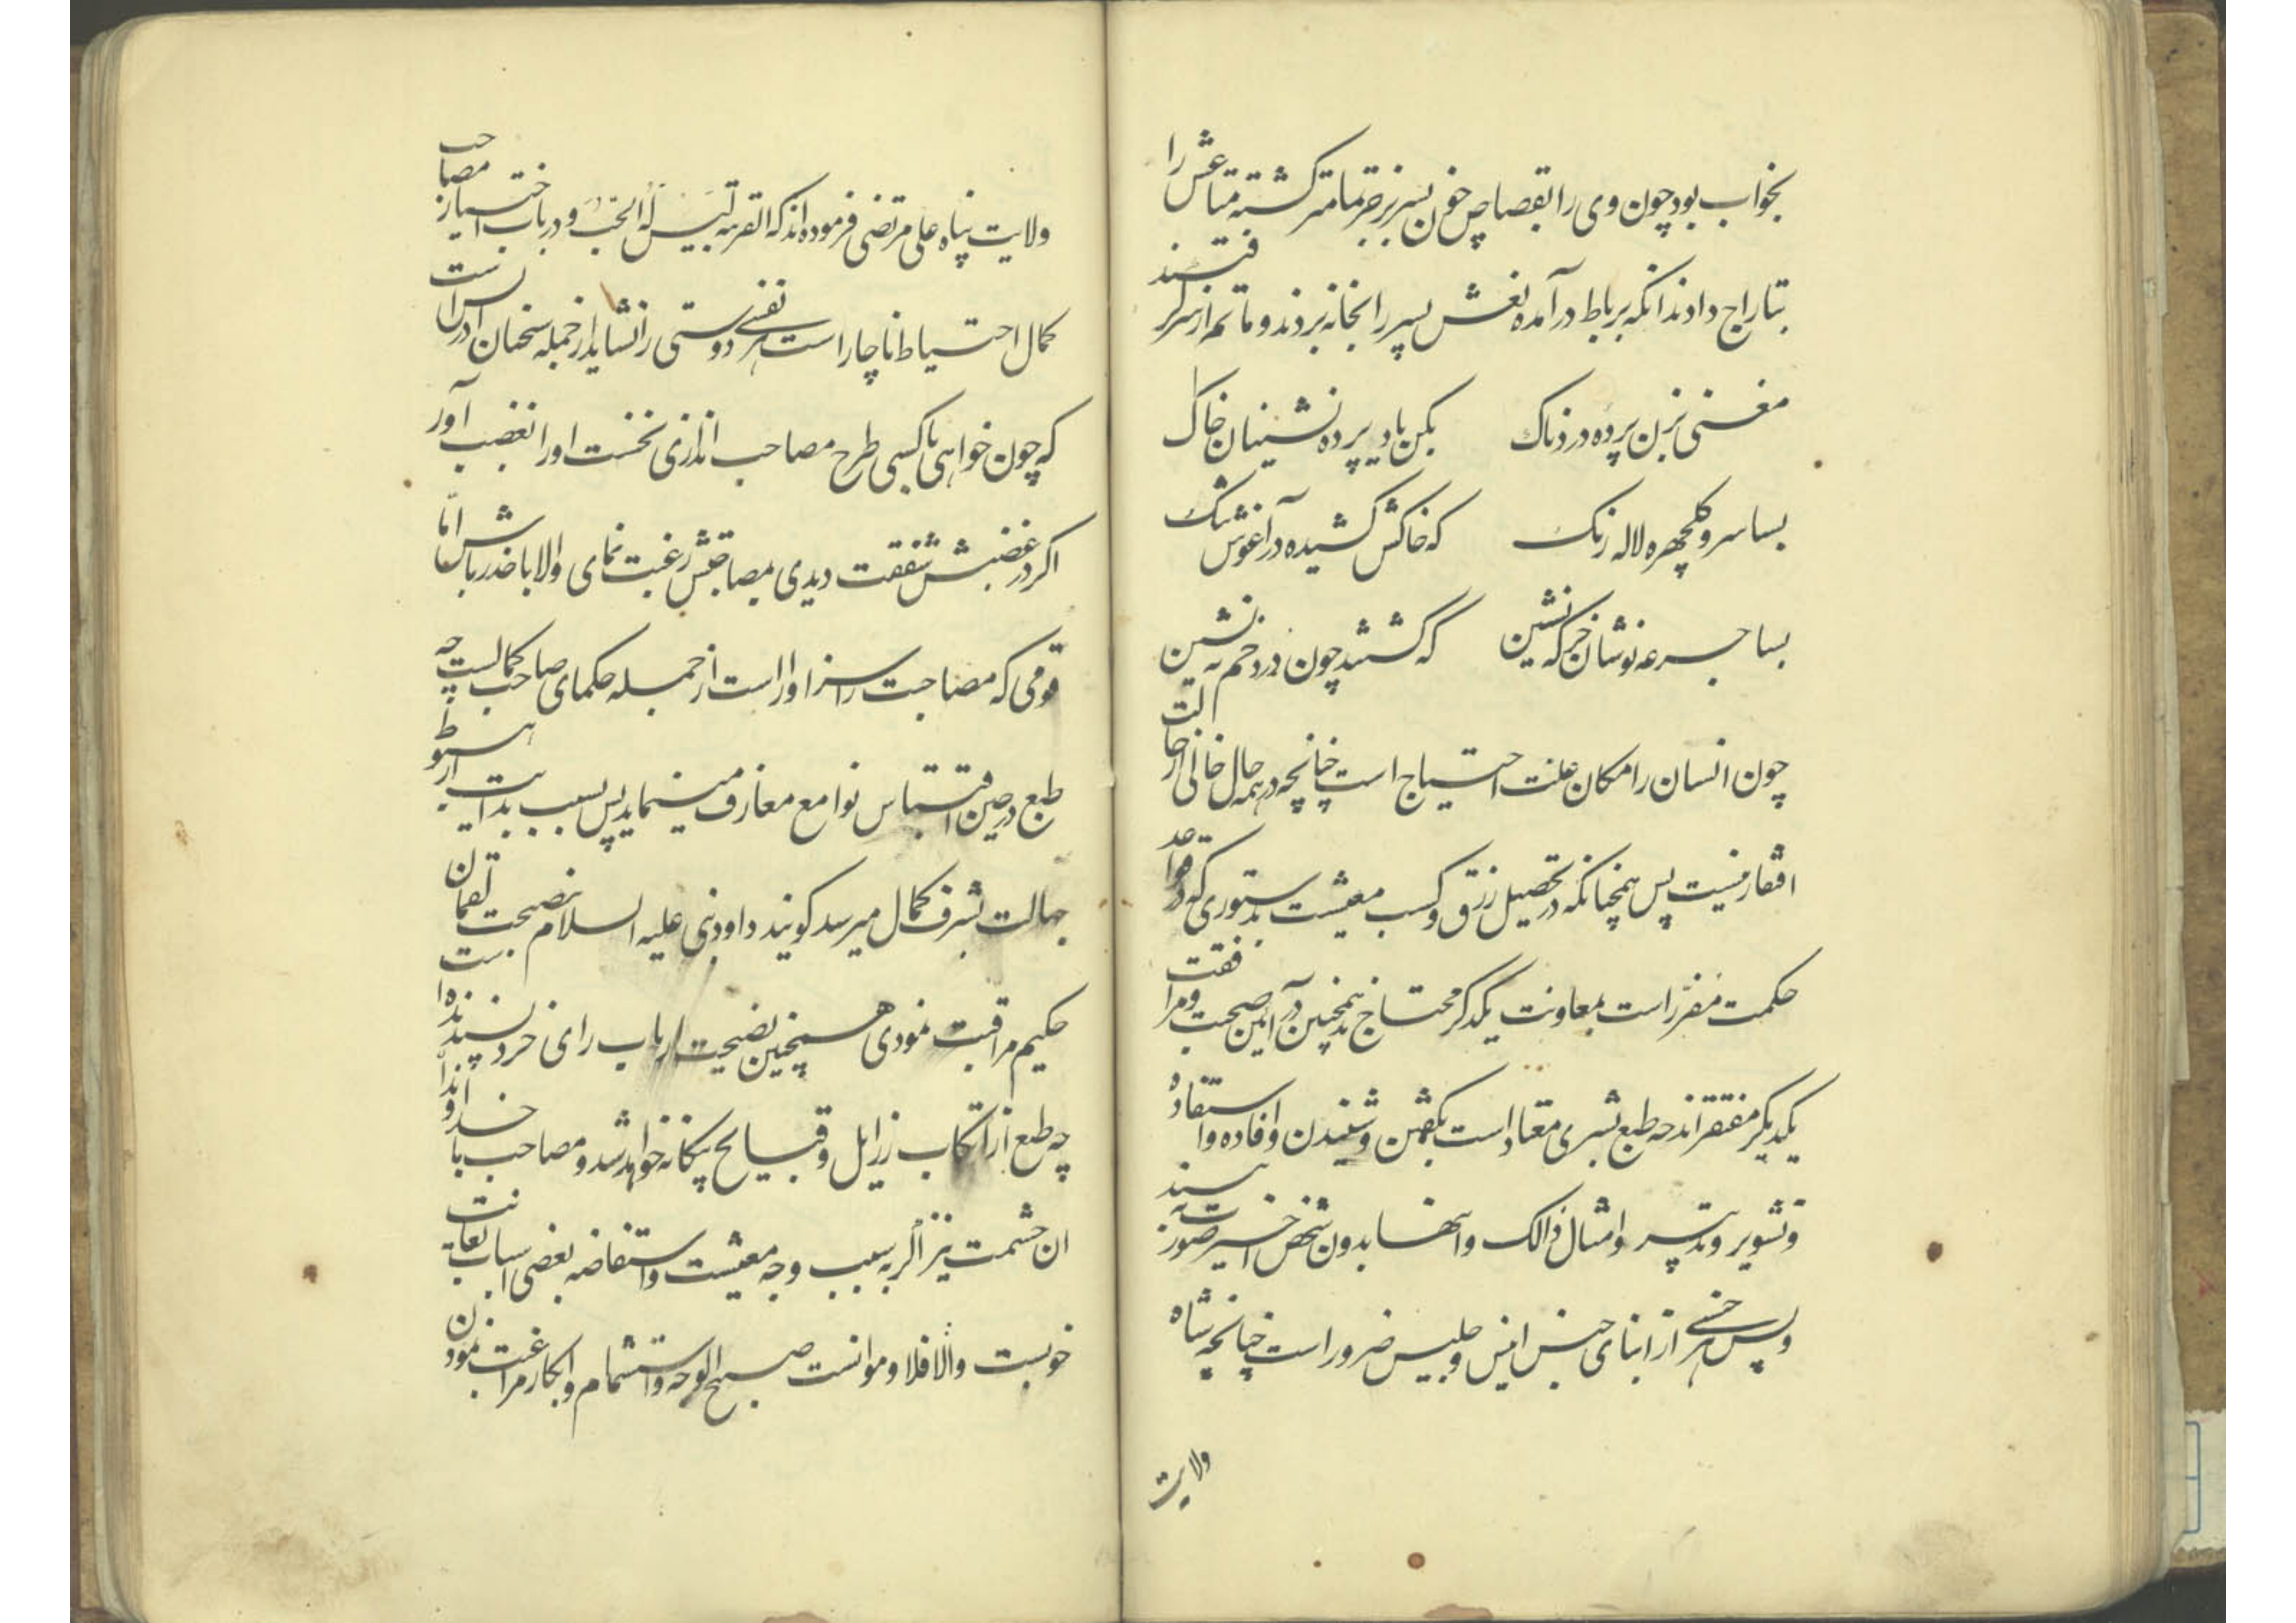 بخواب بود چون وی را بقصاص خون پسر بزجر تمامتر کشته متاعش را
بتاراج دادند انکه برباط درآمده نعش پسر را بخانه بردند و ماتم از سر گرفتند
مغنی بزن پرده دردناک بکن یاد پرده نشینان خاک
بسا سرو گلچهره لاله رنک که خاکش کشیده در آغوش تنک
بسا جرعه نوشان خرگه نشین که گشتند چون درد خم ته نشین
چون انسان را مکان علت احتیاج است چنانچه در همه حال خالی از حالت
افتقار نیست پس همچنانکه در تحصیل رزق و کسب معیشت بدستوری که در قواعد
حکمت مقرر است بمعاونت یکدگر محتاج اند همچنین در آیین صحبت و مرافقت
یکدیکر مفتقر اند چه طبع بشری معتاد است بگفتن و شنیدن و افاده و استفاده
و تشویر و تدبیر و امثال ذالک و اینها بدون شخص اخیر صورت نه بندند
و پس هر جنسی از ابنای جنس انیس و جلیس ضرور است چنانچه شاه
ولایت
ولایت پناه علی مرتضی فرموده اند که القربه لیس له الحب و در باب اختیار مصاحب
کمال احتیاط ناچار است هر نفسی دوستی را نشاید از جمله سخنان ادریس است
که چون خواهی با کسی طرح مصاحب اندازی نخست او را بغضب آور
اگر در غضبش شفقت دیدی بمصاحبتش رغبت نمای والا با حذر باش اما
قومی که مصاحبت را سزاوار است از جمله حکمای صاحب کمالست چه
طبع در حین اقتباس نوامع معارف مینماید پس بسبب بدایت از هبوط
جهالت بشرف کمال میرسد کویند داود نبی علیه السلام بنصیحت لقمان
حکیم مراقبت نمودی همچنین نصیحت ارباب رای خرد پسندیده است
چه طبع از ارتکاب رزایل و قبایح بیکانه خواهد شد و مصاحب با خداوندان
ان حشمت نیز اگر به سبب وجه معیشت و استفاضه بعضی اسباب بغایت
خوبست والا فلا و موانست صبیح الوجه و استشمام و ابکار مراغبت نمودن